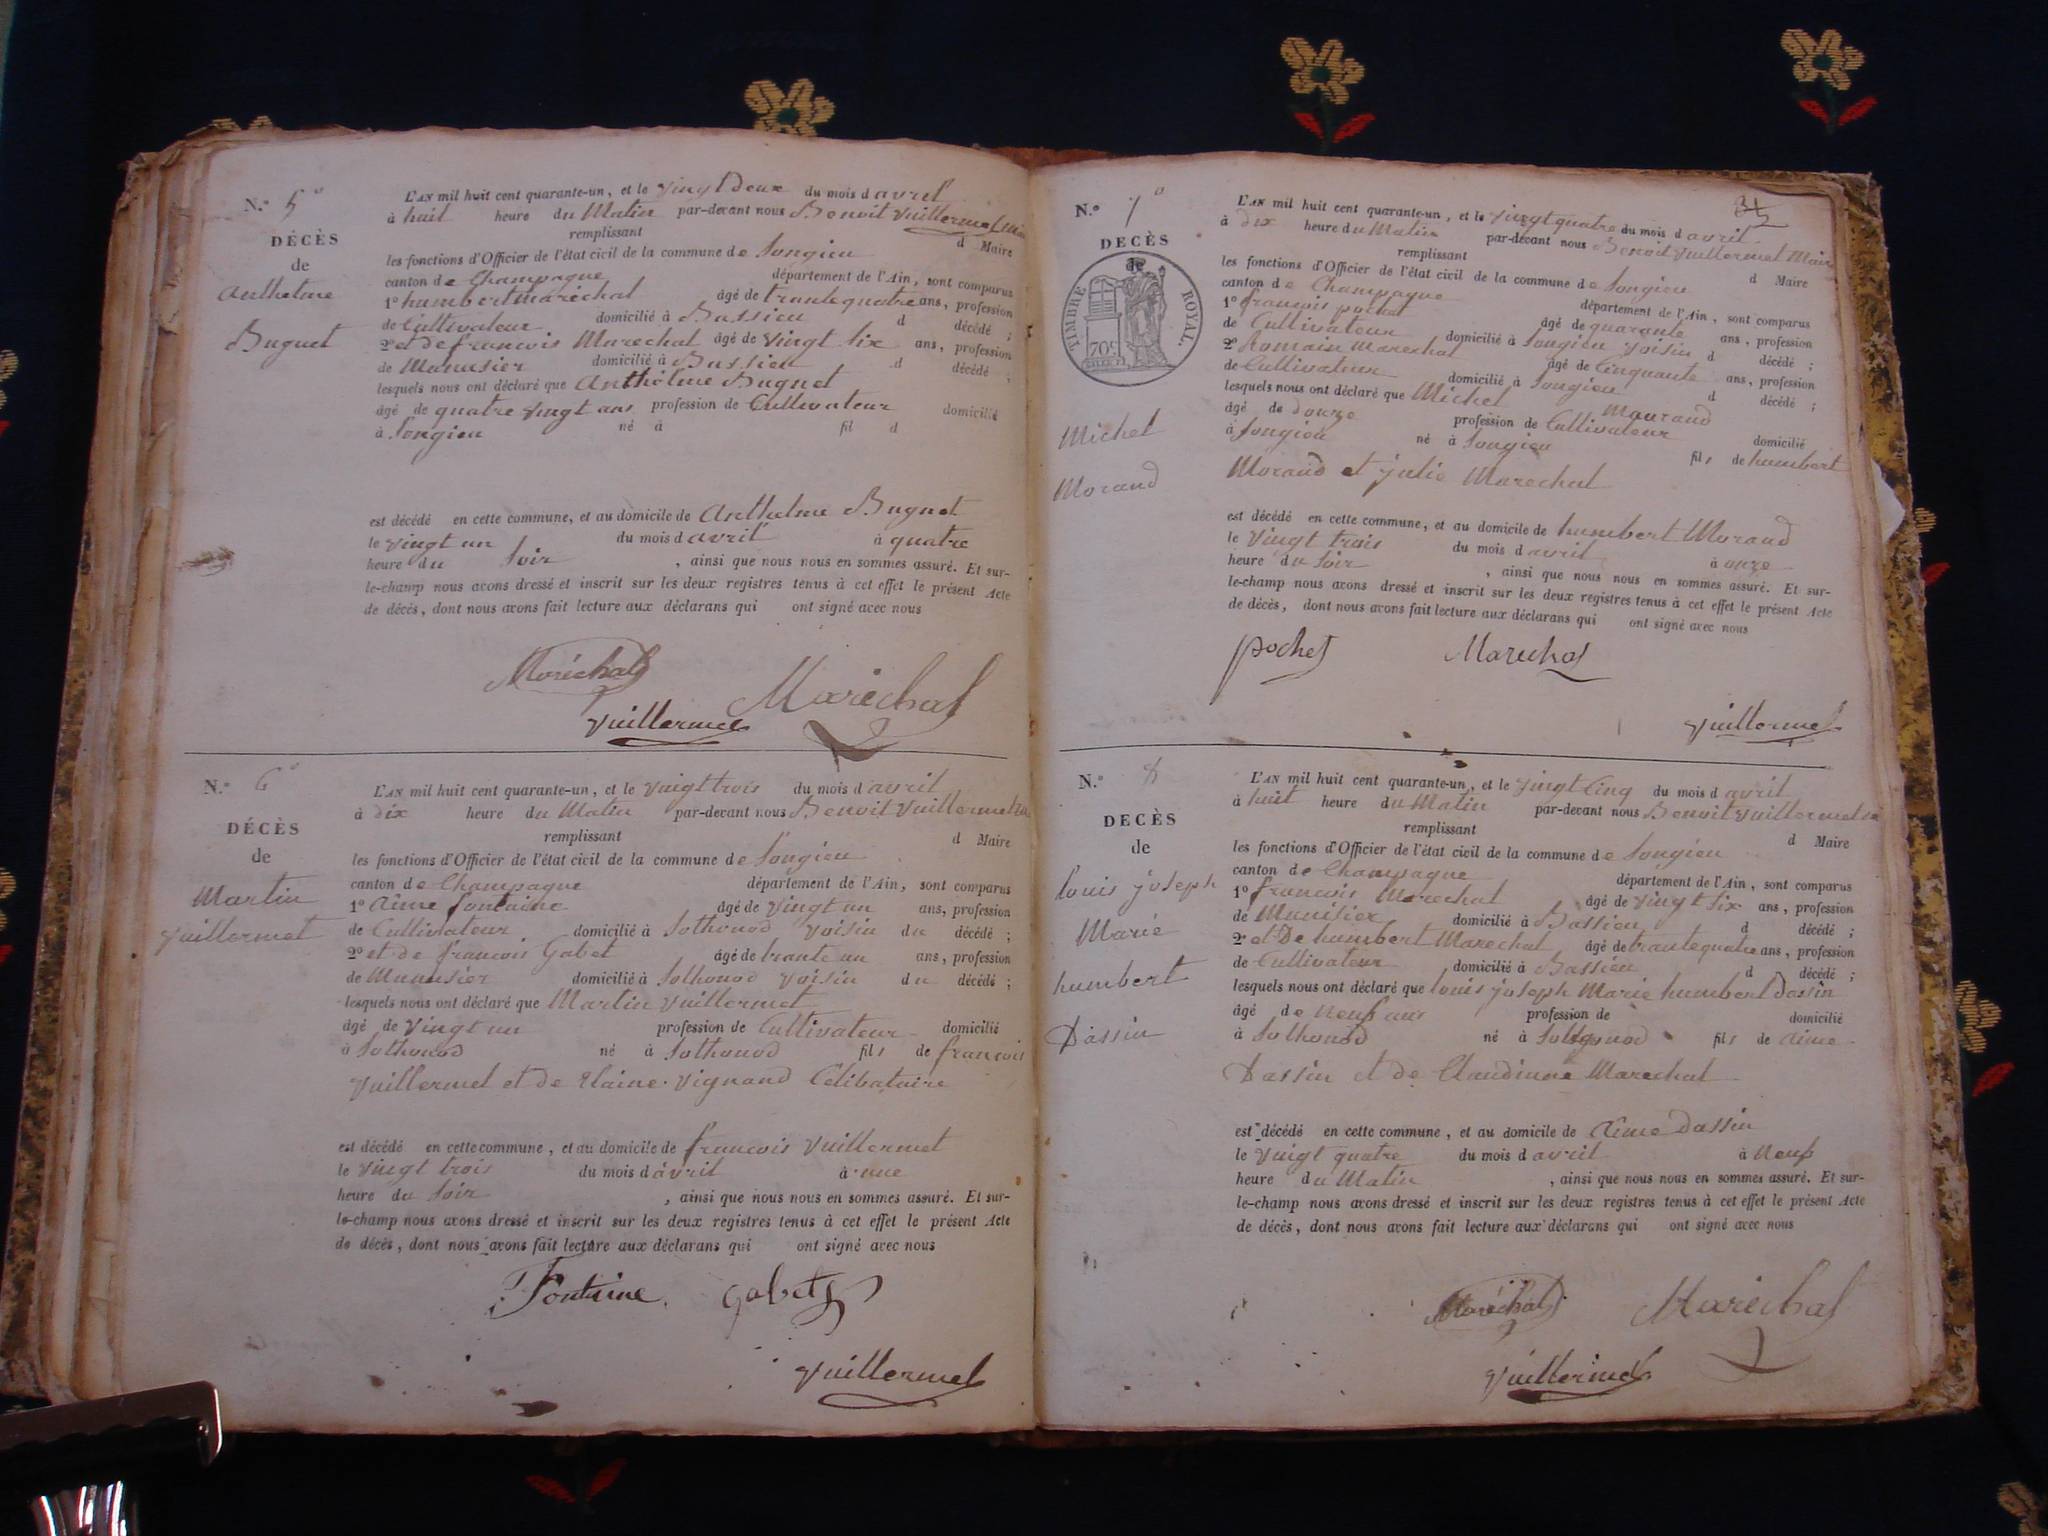 N.º 5º
DÉCÈS
de
Anthelme
Buguet
L'AN mil huit cent quarante-un, et le vingt deux du mois d avril
à huit heure du Matin par-devant nous Benoit Vuillermet
remplissant d Maire
les fonctions d'Officier de l'état civil de la commune de Songieu
canton de Champagne département de l'Ain, sont comparus
1º humbert marechal âgé de trante quatre ans, profession
de Cultivateur domicilié à Bassieu d décédé ;
2º et de francois Marechal âgé de vingt six ans, profession
de Manusier domicilié à Bassieu d décédé ;
lesquels nous ont déclaré que Anthelme Buguet
âgé de quatre vingt ans profession de Cultivateur domicilié
à Songieu né à fil d
est décédé en cette commune, et au domicile de Anthelme Buguet
le vingt un du mois d avril à quatre
heure du Soir , ainsi que nous nous en sommes assuré. Et sur-
le-champ nous avons dressé et inscrit sur les deux registres tenus à cet effet le présent Acte
de décès, dont nous avons fait lecture aux déclarans qui ont signé avec nous
Maréchal
Maréchal
Vuillermet
N.º 6º
DÉCÈS
de
Martin
Vuillermet
L'AN mil huit cent quarante-un, et le vingt trois du mois d avril
à dix heure du Matin par-devant nous Benoit Vuillermet
remplissant d Maire
les fonctions d'Officier de l'état civil de la commune de Songieu
canton de Champagne département de l'Ain, sont comparus
1º Aime fontaine âgé de vingt un ans, profession
de Cultivateur domicilié à Sothonod voisin du décédé ;
2º et de francois Gabet âgé de trante un ans, profession
de Manusier domicilié à Sothonod voisin du décédé ;
lesquels nous ont déclaré que Martin Vuillermet
âgé de vingt un profession de Cultivateur domicilié
à Sothonod né à Sothonod fils de francois
Vuillermet et de Claine Vignand Célibataire
est décédé en cette commune, et au domicile de francois Vuillermet
le vingt trois du mois d avril à une
heure du Soir , ainsi que nous nous en sommes assuré. Et sur-
le-champ nous avons dressé et inscrit sur les deux registres tenus à cet effet le présent Acte
de décès, dont nous avons fait lecture aux déclarans qui ont signé avec nous
Fontaine Gabet
Vuillermet
N.º 7º
DECÈS
de
TIMBRE ROYAL
70 c
Michel
Morand
L'AN mil huit cent quarante-un, et le vingt quatre du mois d avril
à dix heure du Matin par-devant nous Benoit Vuillermet Maire
remplissant d Maire
les fonctions d'Officier de l'état civil de la commune de Songieu
canton de Champagne département de l'Ain, sont comparus
1º francois pochet âgé de quarante ans, profession
de Cultivateur domicilié à Songieu voisin d décédé ;
2º Romain marechal âgé de Cinquante ans, profession
de Cultivateur domicilié à Songieu d décédé ;
lesquels nous ont déclaré que Michel Maurand
âgé de douze profession de Cultivateur domicilié
à Songieu né à Songieu fils de humbert
Morand et julie Marechal
est décédé en cette commune, et au domicile de humbert Morand
le vingt trois du mois d avril à onze
heure du Soir , ainsi que nous nous en sommes assuré. Et sur-
le-champ nous avons dressé et inscrit sur les deux registres tenus à cet effet le présent Acte
de décès, dont nous avons fait lecture aux déclarans qui ont signé avec nous
pochet Marechal
Vuillermet
N.º 8
DECÈS
de
Louis joseph
Marie
humbert
Dassin
L'AN mil huit cent quarante-un, et le vingt Cinq du mois d avril
à huit heure du Matin par-devant nous Benoit Vuillermet
remplissant d Maire
les fonctions d'Officier de l'état civil de la commune de Songieu
canton de Champagne département de l'Ain, sont comparus
1º francois Marechal âgé de vingt Six ans, profession
de Manisier domicilié à Bassieu d décédé ;
2º et De humbert Marechal âgé de trante quatre ans, profession
de Cultivateur domicilié à Bassieu d décédé ;
lesquels nous ont déclaré que louis joseph Marie humbert Dassin
âgé de neuf ans profession de domicilié
à Sothonod né à Sothonod fils de aime
Dassin et de Claudinne Marechal
est décédé en cette commune, et au domicile de Aime Dassin
le vingt quatre du mois d avril à neuf
heure du Matin , ainsi que nous nous en sommes assuré. Et sur-
le-champ nous avons dressé et inscrit sur les deux registres tenus à cet effet le présent Acte
de décès, dont nous avons fait lecture aux déclarans qui ont signé avec nous
Maréchal Maréchal
Vuillermet